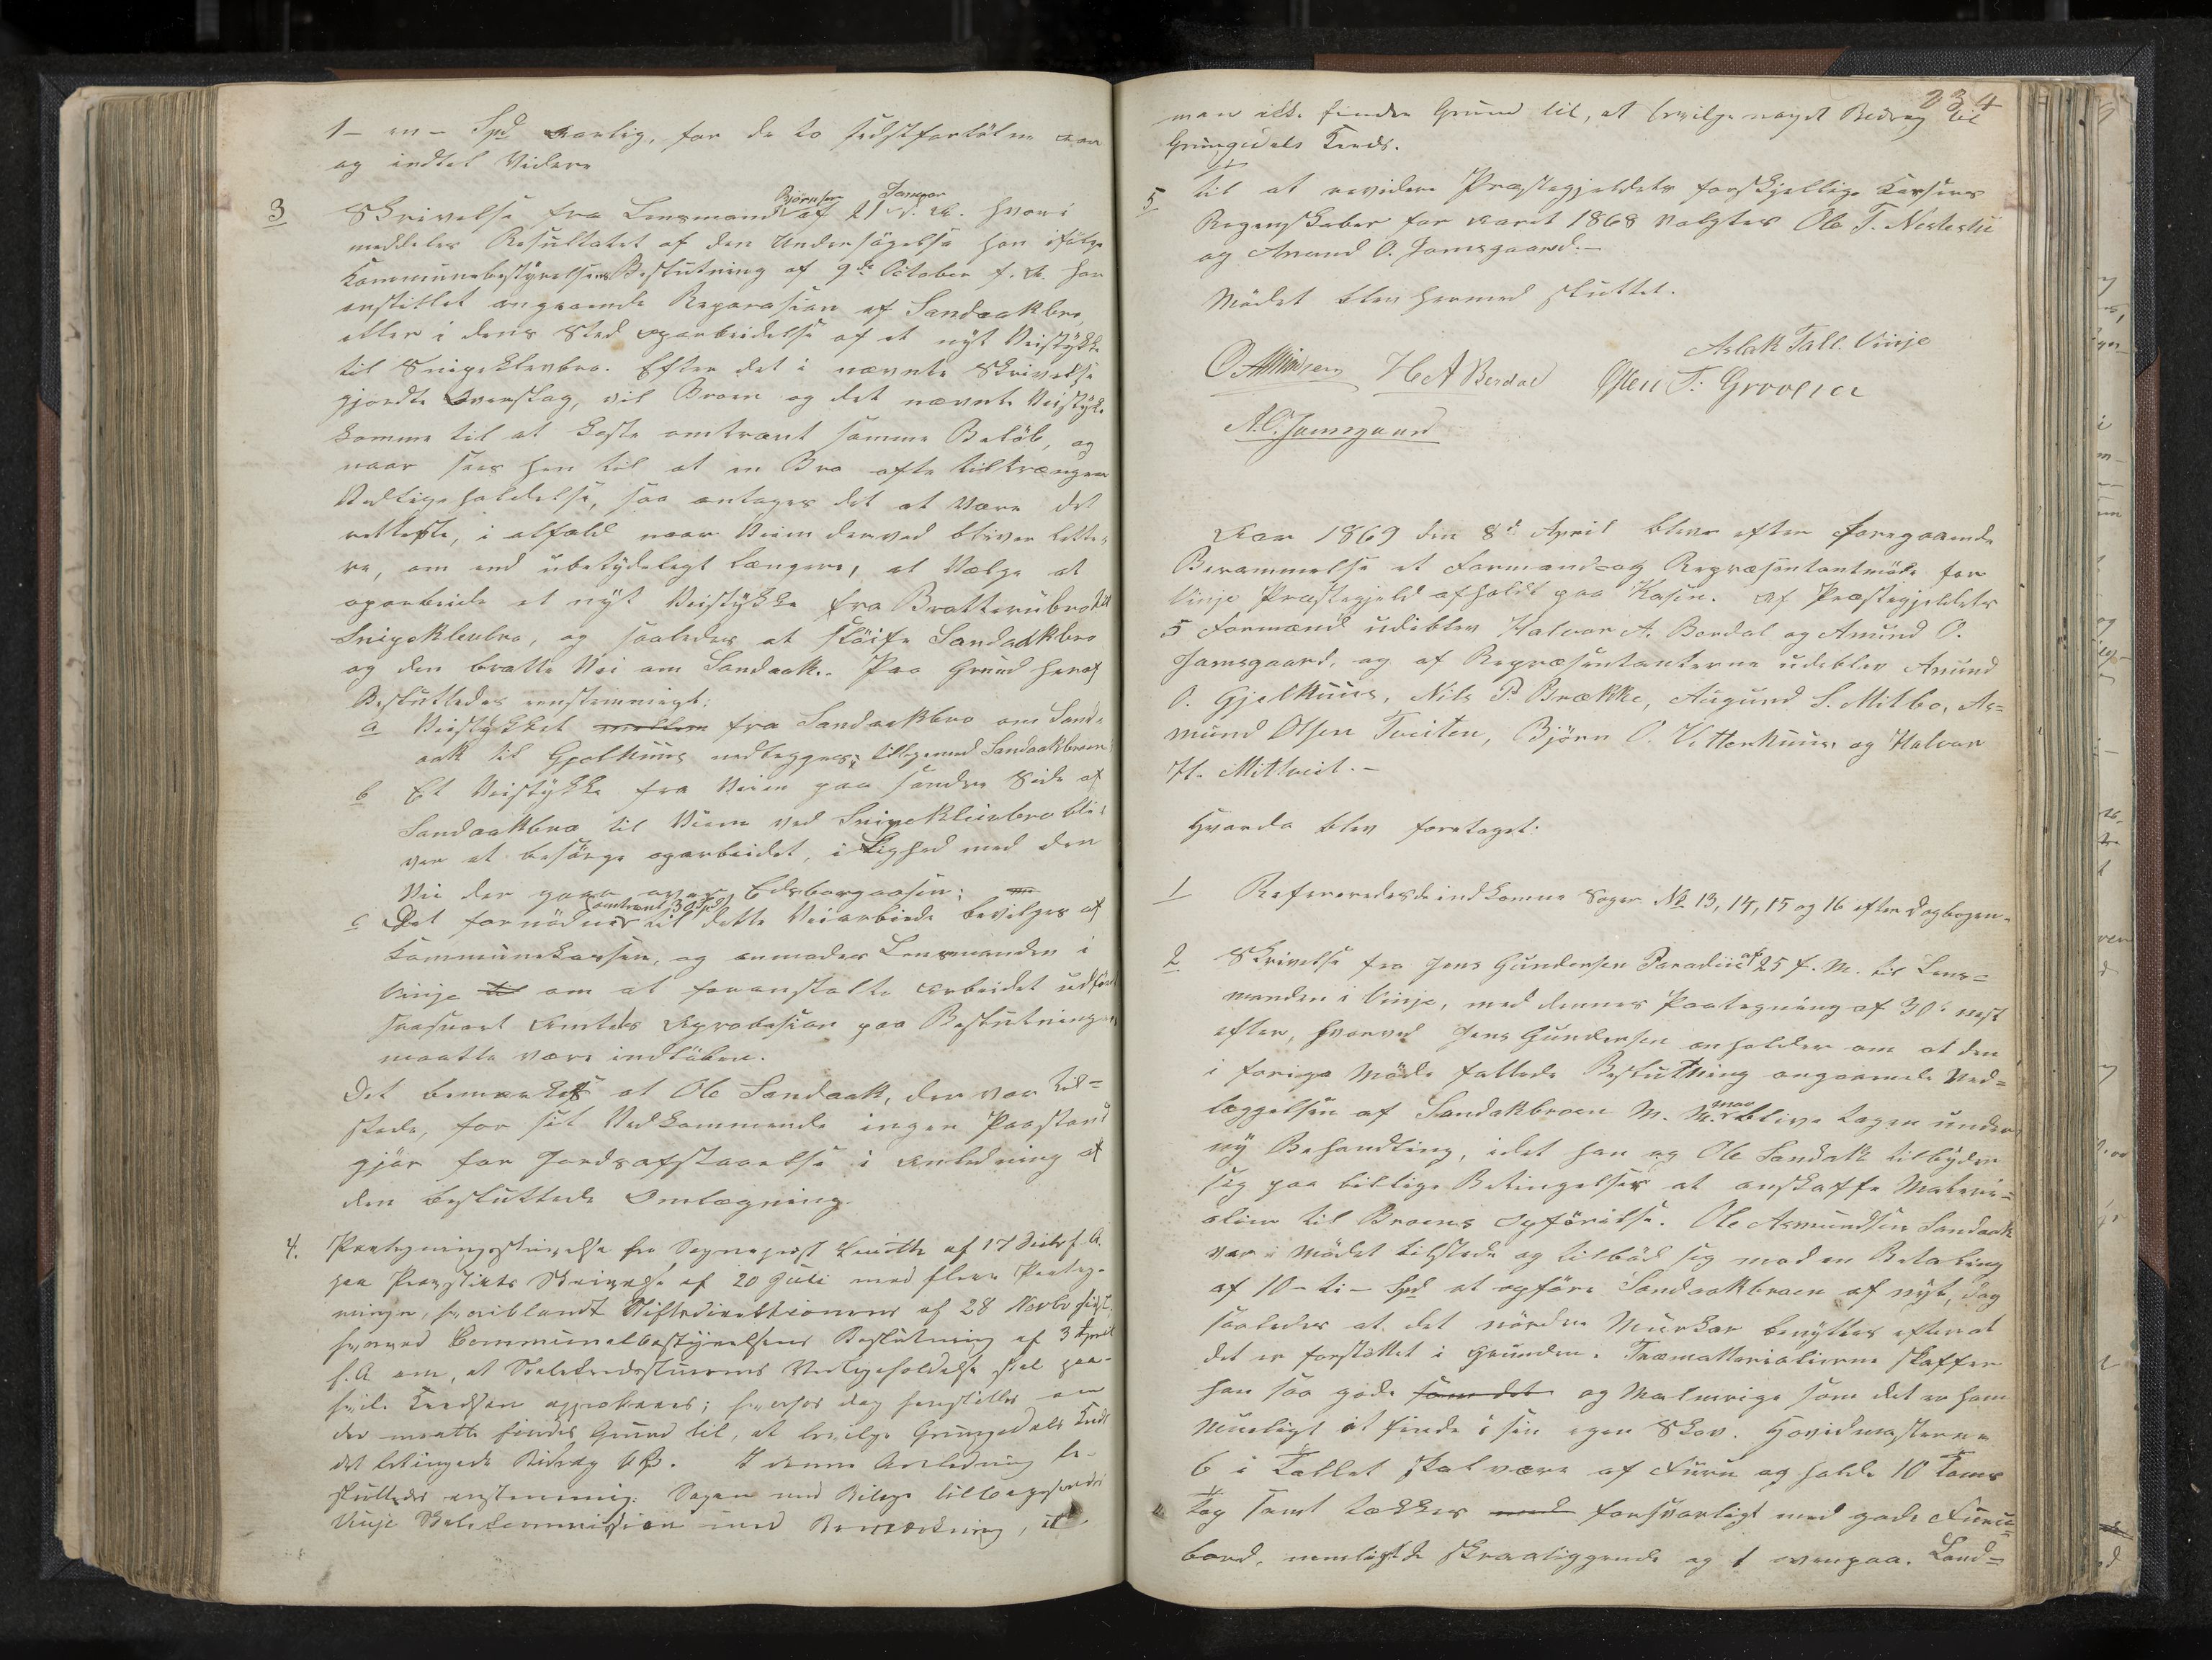 1 – en – Spd aarlig, for de to sidstforløbne Aar
og indtil Videre
3 Skrivelse fra Lensmand Bjørnsen af 21 Januar d. A. hvori
meddeles Resultatet af den Undersögelse han ifölge
Kommunebestyrelsens Beslutning af 9de October f. A. har
anstillet angaaende Reparasion af Sandaakbro,
eller i dens Sted oparbeidelse af et nyt Veistykke
til Snipeklevbro. Efter det i nævnte Skrivelse
gjordte Overslag, vil Broen og det nævnte Veistykke
komme til at koste omtrent samme Belöb, og
naar sees hen til at en Bro ofte tiltrænger
Vedligeholdelse, saa antages det at være det
retteste, i alfald naar Veien derved bliver lette-
re, om end ubetydelegt længere, at Vælge at
oparbeide et nyt Veistykke fra Bratterubro til
Snipeklevbro, og saaledes at slöife Sandaakbro
og den bratte Vei om Sandaak. Paa Grund heraf
Besluttedes eenstemmigt:
a Veistykket mellem fra Sandaakbro om Sand-
aak til Gjelhuus nedlegges; tilligemed Sandaakbroen;
b Et Veistykke fra Veien paa söndre Side af
Sandaakbro til Veien ved Snipeklevbro bli-
ver at besörge oparbeidet, i Lighed med den
Vei der gaar over Edsborgaasen;
c Det fornödne (omtrent 30 Spd) til dette Veiarbeide bevilges af
Kommunekassen, og anmodes Lensmanden i
Vinje til om at foranstalte Arbeidet udfört
saasnart Amtets Aprobasion paa Beslutningen
maatte være indlöben.
Det bemærkes at Ole Sandaak, der var til-
stede, for sit Vedkommende ingen Paastand
gjör for Jordsafstaaelse i Anledning af
den besluttede Omlægning.
4. Paategningsskrivelse fra Sogneprest af 17 f. A.
paa Provstiets Skrivelse af 20 Juli med flere Paateg-
ninger, hvoriblandt Stiftsdirektionens af 28 Novbr sidst.
hvorved Communalbestyrelsens Beslutning af 3 April
f. A. om, at Skolekredsstuernes Vedligeholdelse skal paa-
hvile Kredsen approberes; hvorhos dog henstilles om
der maatte findes Grund til, at bevilge Grungedals Kreds
det betingede Bidrag . I denne Anledning be-
sluttedes enstemmig: Sagen med Bilage tilbagesendes
Vinje Skolekommission med Bemærkning, at
234
man ikke finder Grund til, at bevilge noget Bidrag til
Grungedals Kreds.
5 Til at revidere Præstegjeldets forskjellige Kassers
Regnskaber for Aaret 1868 valgtes Ole T. Nesteslie
og Amund O. Jamsgaard.–
Mödet blev hermed sluttet.
Aslak Tall. Vinje
H A Berdal
T. Grovene
A. O. Jamsgaard
Aar 1869 den 8de April blev efter foregaaende
Berammelse et Formands-og Repræsentantmöde for
Vinje Præstegjeld afholdt paa Kasin. Af Præstegjeldets
5 Formænd udeblev Halvor A. Berdal og Amund O.
Jamsgaard, og af Repræsentanterne udeblev Amund
O. Gjelhuus, Nils P. Brække, Augund S. Mitbø, As=
mund Olsen Tveiten, Björn O. Vetterhuus og Halvor
H. Mitveit.–
Hvorda blev foretaget:
1 Refereredes de indkomne Sager No 13, 14, 15 og 16 efter Dagbogen.
2 Skrivelse fra Jens Gundersen Paradiis af 25 f. M. til Lens=
manden i Vinje, med dennes Paategning af 30te nest
efter, hvorved Jens Gundersen anholder om at den
i forige Möde fattede Beslutning angaaende Ned=
læggelsen af Sandakbroen M. M. maa blive tagen under
ny Behandling, idet han og Ole Sandak tilbyder
sig paa billige Betingelser at anskaffe Materi=
alier til Broens Opförelse. Ole Asmundsen Sandaak
var i Mödet tilstede og tilböd sig mod en Betaling
af 10 – ti – Spd at opföre Sandaakbroen af nyt, dog
saaledes at det nördre Murkar benyttes efterat
det er forstöttet i Grunden. Træmatterialierne skaffer
han saa gode som det og Malmrige som det er ham
mueligt at finde i sin egen Skov. Hovidmasterne
6 i Tallet skal være af Furu og holde 10 Toms
Top samt lækkes med forsvarligt med gode Furu=
bord, nemlig 2de skraaliggende og 1 ovenpaa. Land=